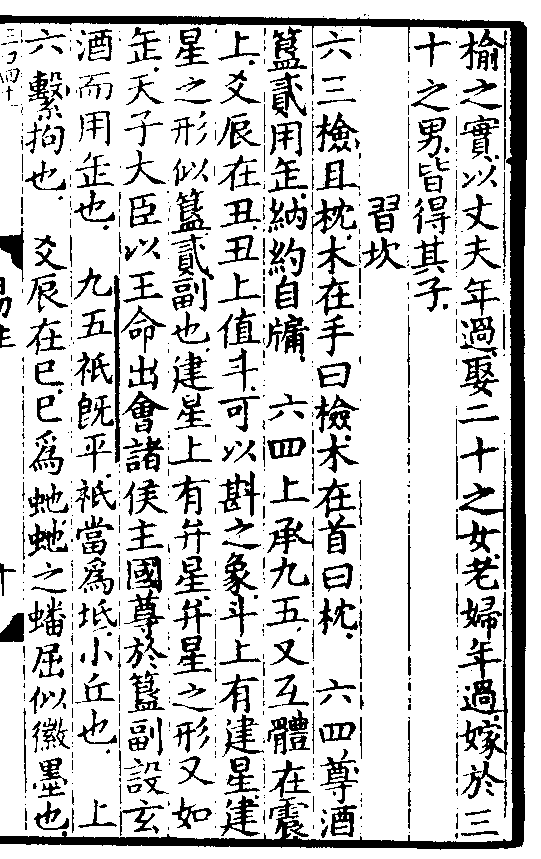 榆之實以丈夫年過娶二十之女老婦年過嫁於三
十之男皆得其子
習坎
六三檢且枕木在手曰檢木在首曰枕　六四尊酒
簋貳用缶納約自牖　六四上承九五又互體在震
上爻辰在丑丑上值斗可以斟之象斗上有建星建
星之形似簋貳副也建星上有弁星弁星之形又如
缶天子大臣以王命出會諸侯主國尊於簋副設玄
酒而用缶也　九五祇旣平祇當爲坻小丘也　上
六　繫拘也　爻辰在巳巳爲虵虵之蟠屈似徽墨也